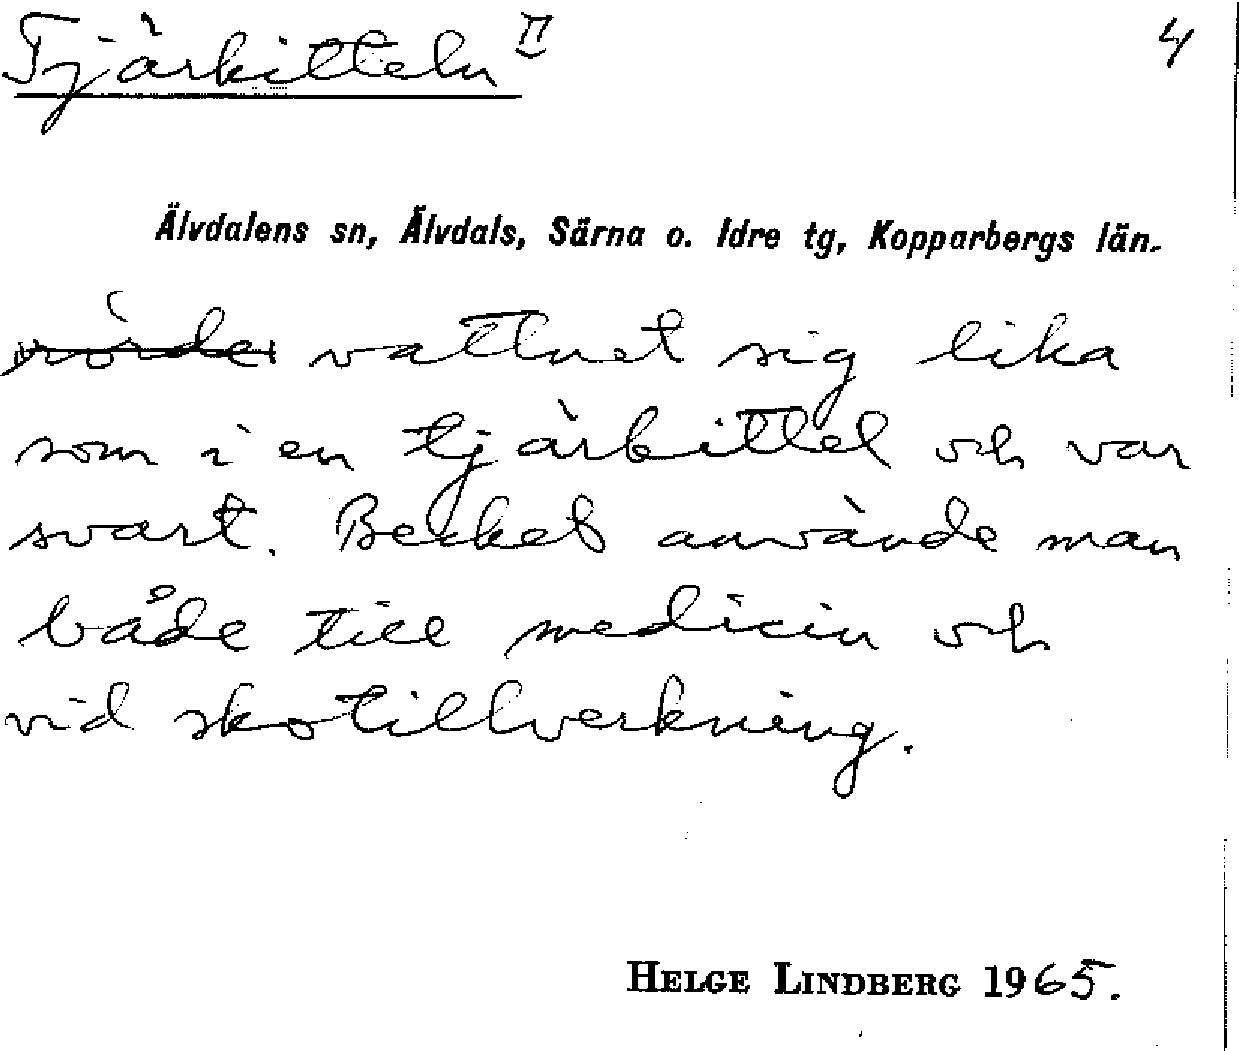 Tjärkitteln II 4
Älvdalens sn, Älvdals, Särna o. Idre tg, Kopparbergs län.
rörde vattnet sig lika
som i en tjärkittel och var
svart. Becket använde man
både till medicin och
vid skotillverkning.
HELGE LINDBERG 1965.